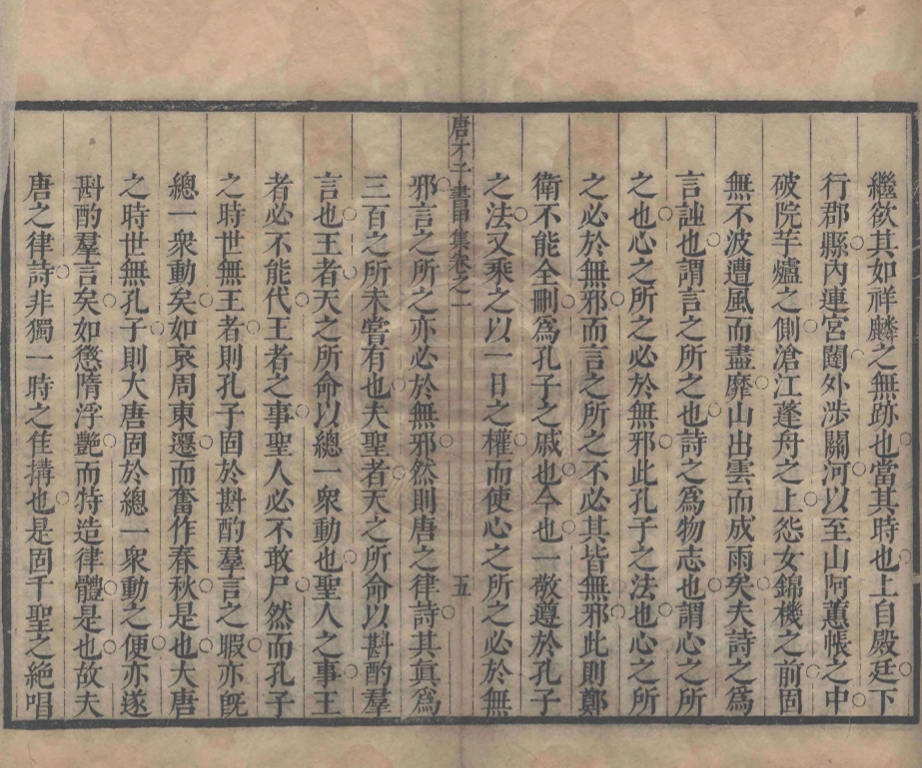 繼欲其如祥麟之無跡也當其時也上自殿廷下
行郡縣內連宮閫外涉關河以至山阿蕙帳之中
破院芋爐之側滄江蓬舟之上怨女錦機之前固
無不波遭風而盡靡山出雲而成雨矣夫詩之爲
言詘也謂言之所之也詩之爲物志也謂心之所
之也心之所之必於無邪此孔子之法也心之所
之必於無邪而言之所之不必其皆無邪此則鄭
衛不能全刪爲孔子之戚也今也一敬遵於孔子
之法又乘之以一日之權而使心之所之必於無
唐才子書甲集卷之一 五
邪言之所之亦必於無邪然則唐之律詩其眞爲
三百之所未嘗有也夫聖者天之所命以斟酌羣
言也王者天之所命以總一衆動也聖人之事王
者必不能代王者之事聖人必不敢尸然而孔子
之時世無王者則孔子固於斟酌羣言之暇亦旣
總一衆動矣如哀周東遷而奮作春秋是也大唐
之時世無孔子則大唐固於總一衆動之便亦遂
斟酌羣言矣如懲隋浮艷而特造律體是也故夫
唐之律詩非獨一時之隹搆也是固千聖之絶唱